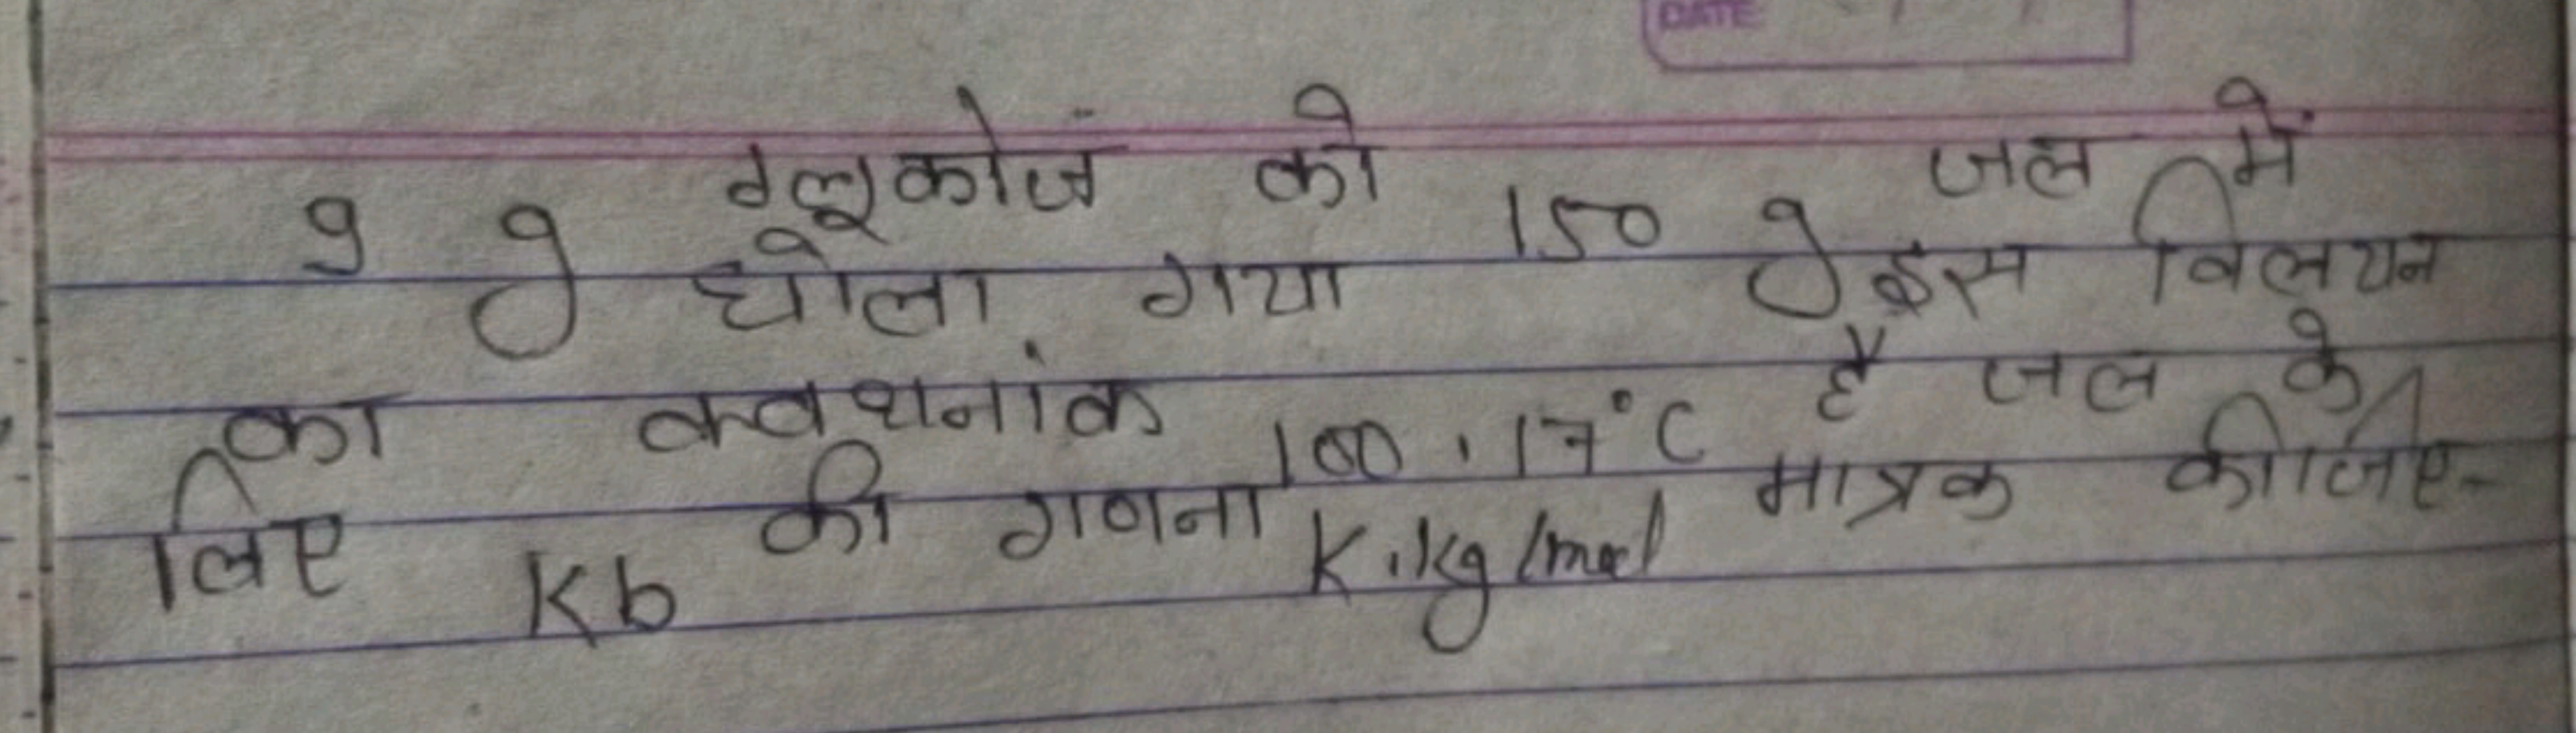 DATE
9 g ग्लूकोज को 150 g जल में
घोला गया इस विलयन
का क्वथनांक 100.17°C है जल के
लिए Kb की गणना K.kg/mol मात्रक कीजिए-